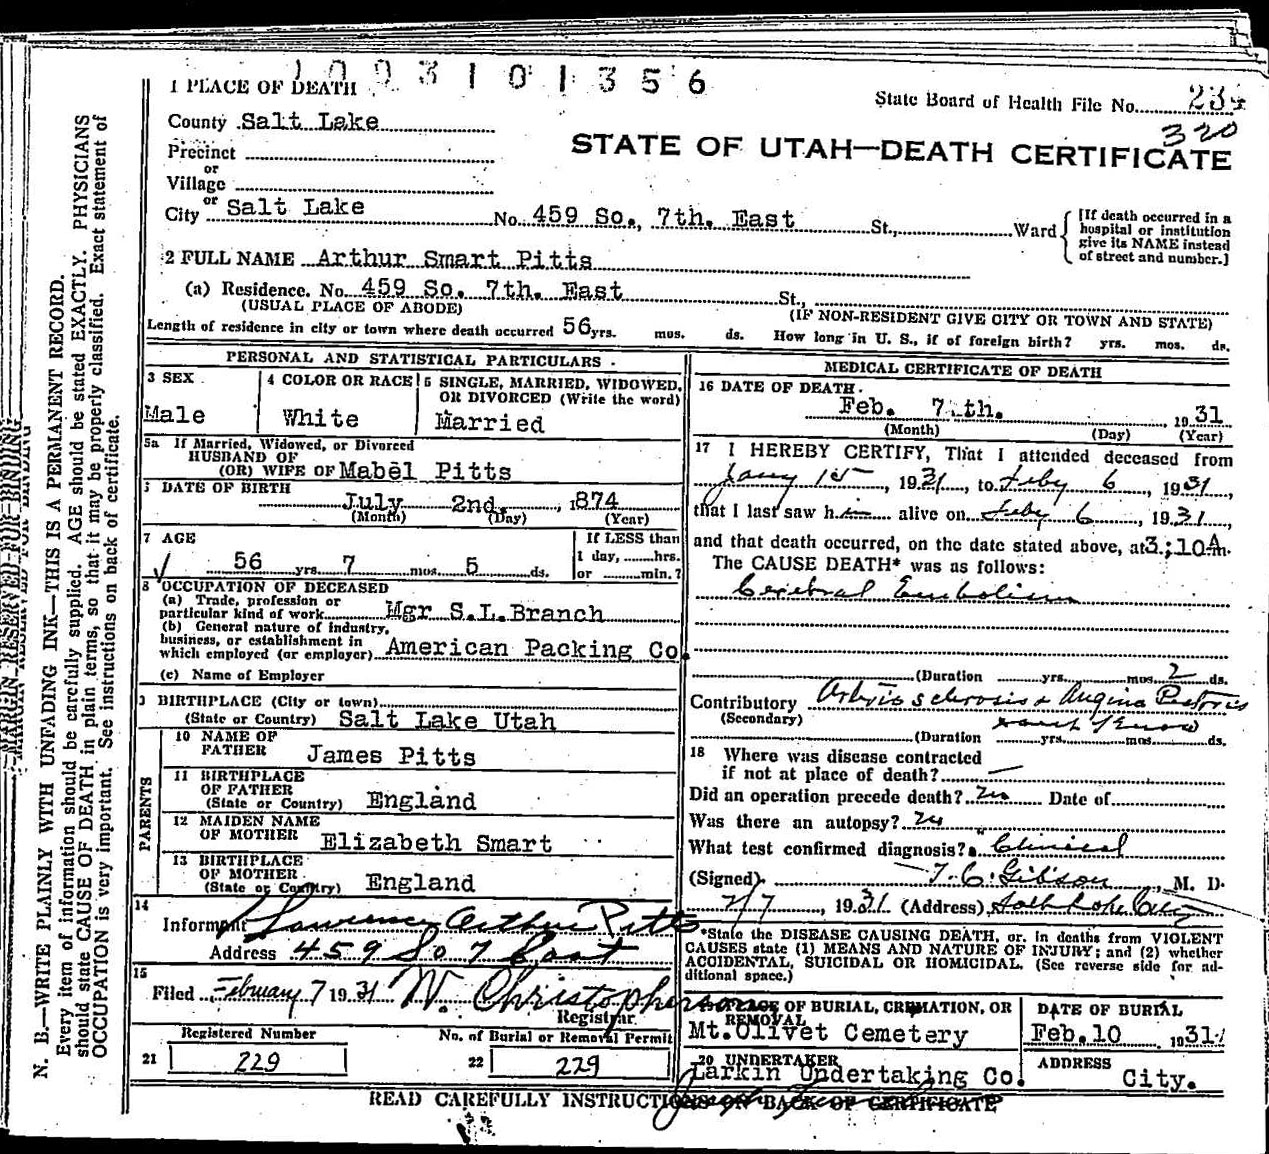 1003101356
1 PLACE OF DEATH
State Board of Health File No. 234
320
County Salt Lake
STATE OF UTAH—DEATH CERTIFICATE
Precinct
or
Village
or
City Salt Lake No. 459 So. 7th. East St., Ward
[If death occurred in a
hospital or institution
give its NAME instead
of street and number.]
2 FULL NAME Arthur Smart Pitts
(a) Residence. No. 459 So. 7th. East St.,
(USUAL PLACE OF ABODE) (IF NON-RESIDENT GIVE CITY OR TOWN AND STATE)
Length of residence in city or town where death occurred 56 yrs. mos. ds. How long in U. S., if of foreign birth? yrs. mos. ds.
PERSONAL AND STATISTICAL PARTICULARS
3 SEX
Male
4 COLOR OR RACE
White
5 SINGLE, MARRIED, WIDOWED,
OR DIVORCED (Write the word)
Married
5a If Married, Widowed, or Divorced
HUSBAND OF
(OR) WIFE OF Mabel Pitts
DATE OF BIRTH
July 2nd, 1874
(Month) (Day) (Year)
7 AGE
56 yrs. 7 mos. 5 ds.
If LESS than
1 day, hrs.
or min.?
8 OCCUPATION OF DECEASED
(a) Trade, profession or
particular kind of work Mgr S.L. Branch
(b) General nature of industry,
business, or establishment in
which employed (or employer) American Packing Co.
(c) Name of Employer
BIRTHPLACE (City or town)
(State or Country) Salt Lake Utah
PARENTS
10 NAME OF
FATHER James Pitts
11 BIRTHPLACE
OF FATHER
(State or Country) England
12 MAIDEN NAME
OF MOTHER Elizabeth Smart
13 BIRTHPLACE
OF MOTHER
(State or Country) England
14
Informant Lawrence Arthur Pitts
Address 459 So 7 East
15
Filed February 7 1931 W. Christopherson
Registrar
Registered Number No. of Burial or Removal Permit
21 229 22 229
MEDICAL CERTIFICATE OF DEATH
16 DATE OF DEATH
Feb. 7 th. 1931
(Month) (Day) (Year)
17 I HEREBY CERTIFY, That I attended deceased from
Jany 15, 1931, to Feby 6, 1931,
that I last saw him alive on Feby 6, 1931,
and that death occurred, on the date stated above, at 3:10 A.m.
The CAUSE DEATH* was as follows:
Cerebral Embolism
(Duration yrs. mos. 2 ds.
Contributory Arterio sclerosis & Angina Pectoris
(Secondary)
(Duration yrs. mos. ds.
18 Where was disease contracted
if not at place of death? —
Did an operation precede death? no Date of
Was there an autopsy? no
What test confirmed diagnosis? Clinical
(Signed) T. C. Gibson, M. D.
2/7, 1931 (Address) Salt Lake City
*State the DISEASE CAUSING DEATH, or. in deaths from VIOLENT
CAUSES state (1) MEANS AND NATURE OF INJURY; and (2) whether
ACCIDENTAL, SUICIDAL OR HOMICIDAL. (See reverse side for ad-
ditional space.)
19 PLACE OF BURIAL, CREMATION, OR
REMOVAL
Mt. Olivet Cemetery
DATE OF BURIAL
Feb. 10 1931
20 UNDERTAKER
Larkin Undertaking Co.
ADDRESS
City.
READ CAREFULLY INSTRUCTIONS ON BACK OF CERTIFICATE
MARGIN RESERVED FOR BINDING
N. B.—WRITE PLAINLY WITH UNFADING INK—THIS IS A PERMANENT RECORD.
Every item of information should be carefully supplied. AGE should be stated EXACTLY. PHYSICIANS
should state CAUSE OF DEATH in plain terms, so that it may be properly classified. Exact statement of
OCCUPATION is very important. See instructions on back of certificate.